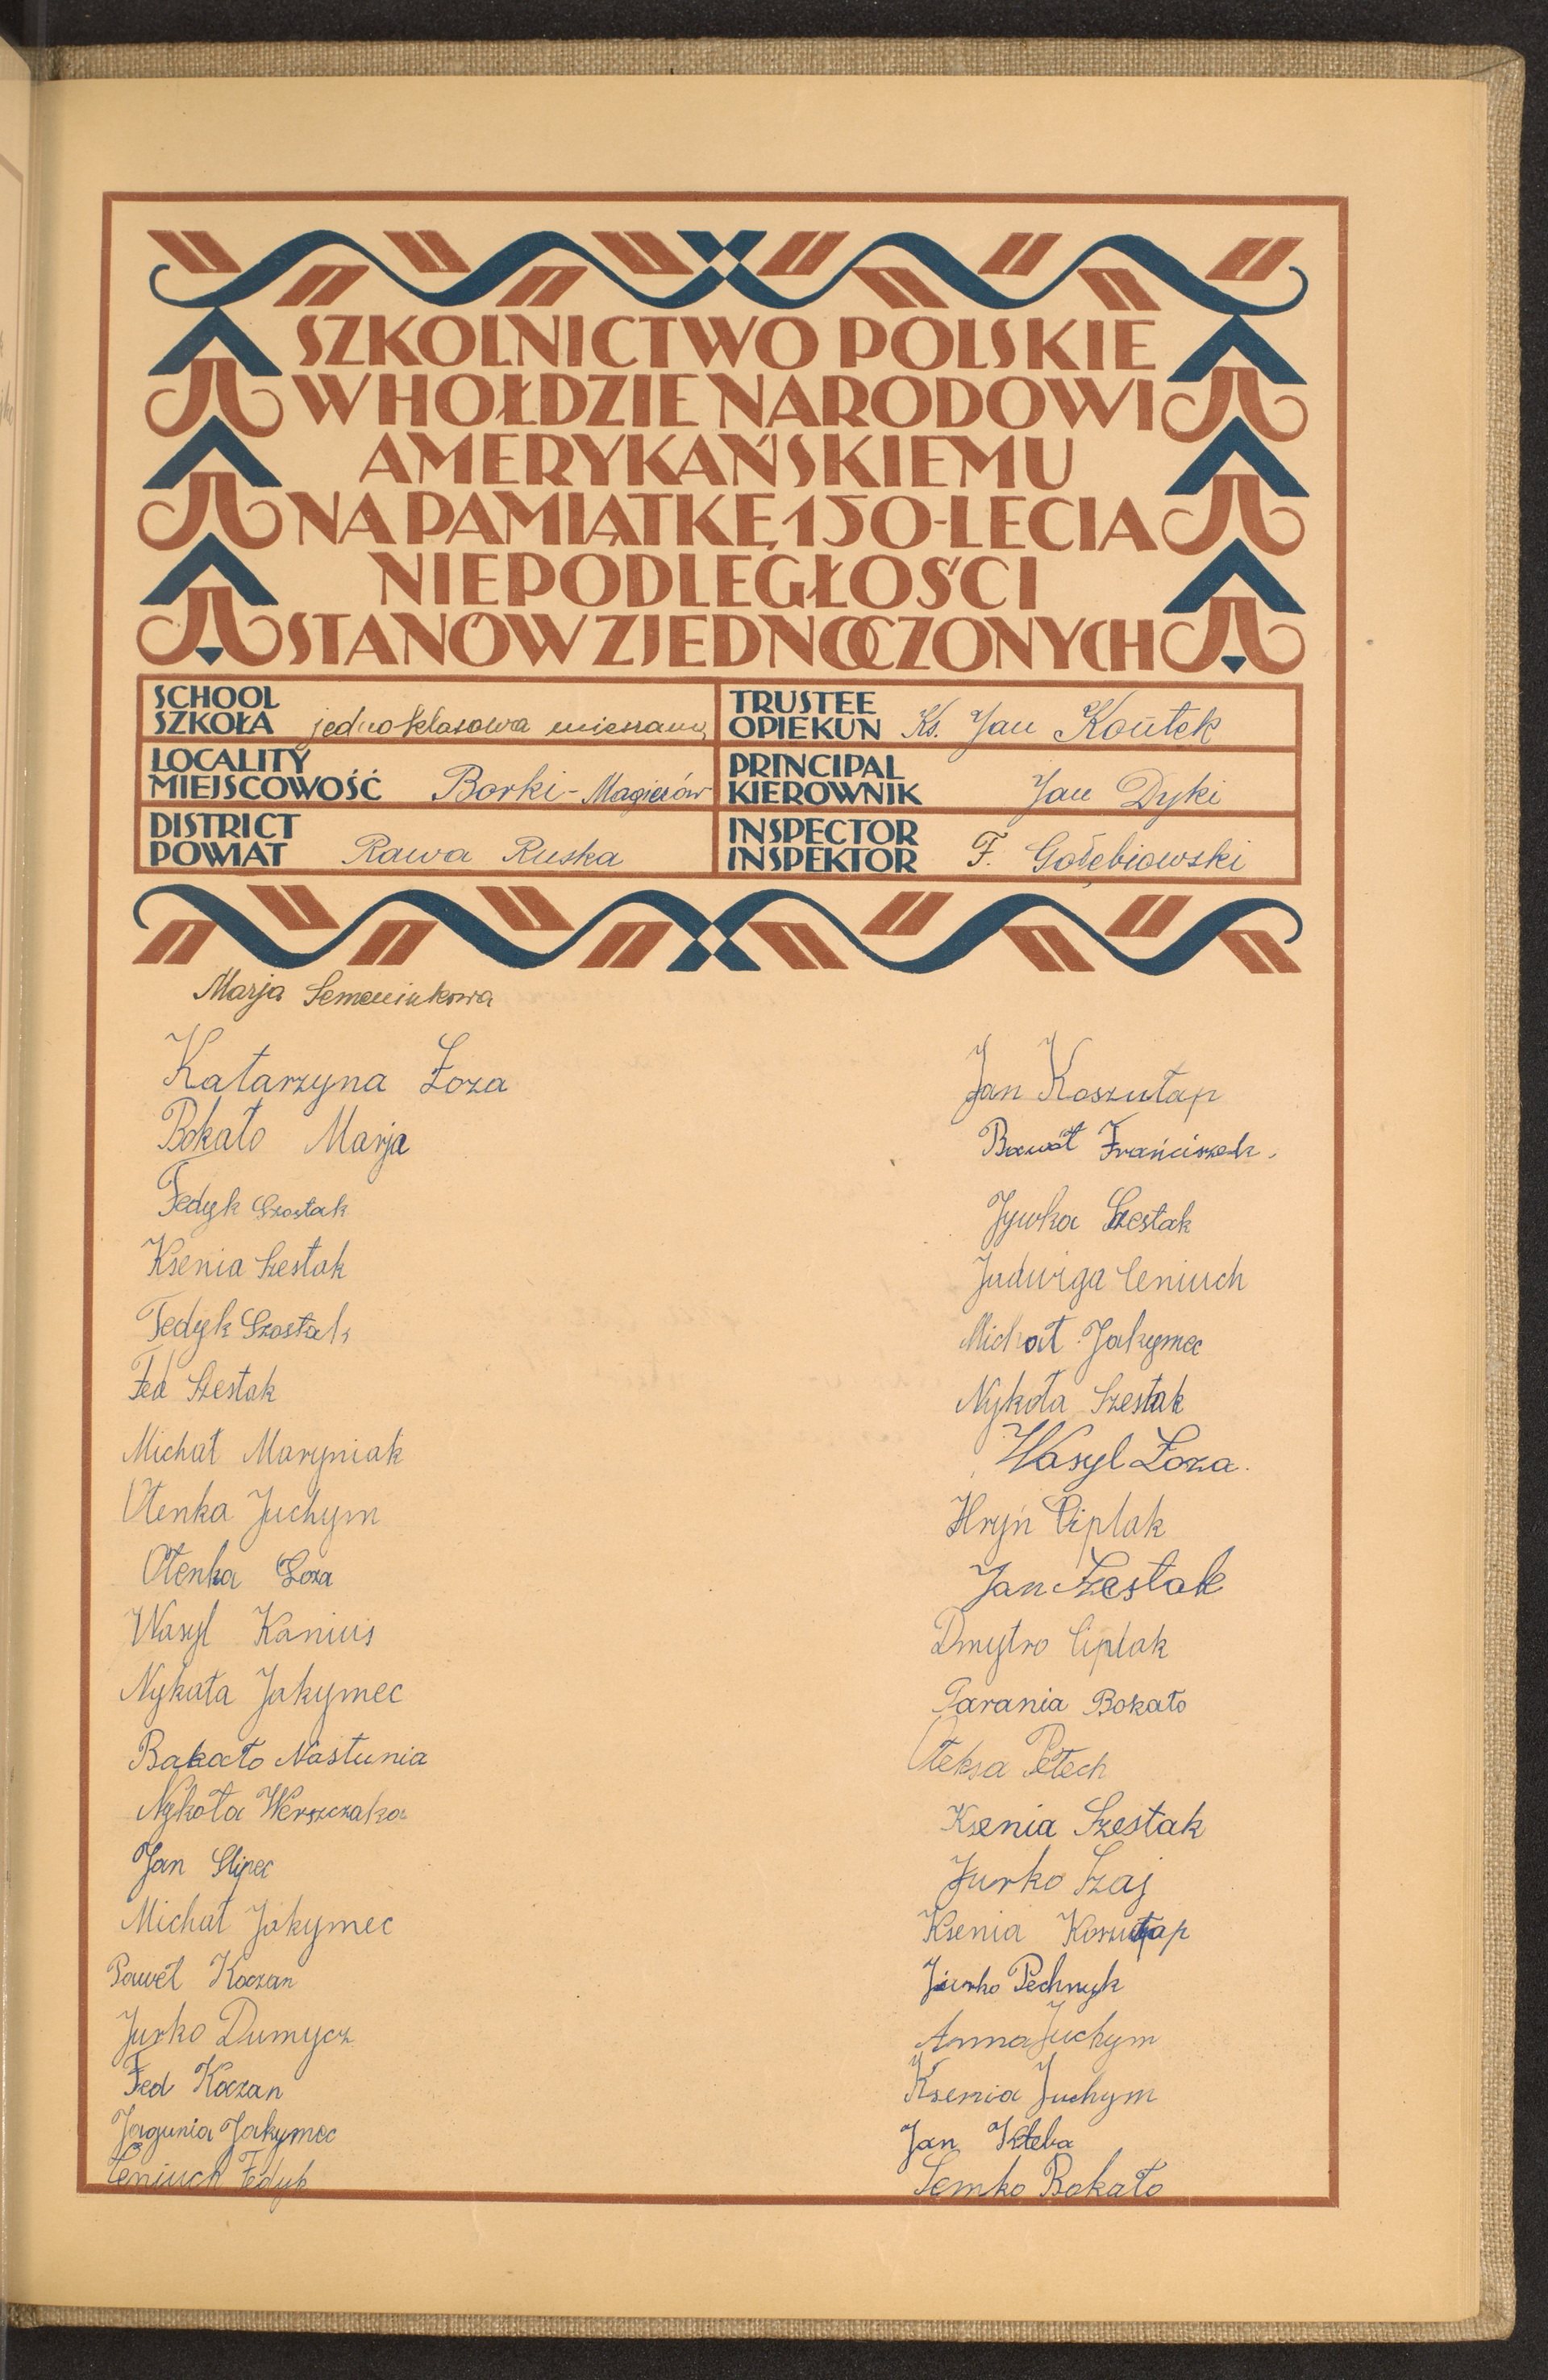 SZKOLNICTWO POLSKIE
W HOŁDZIE NARODOWI
AMERYKAŃSKIEMU
NA PAMIĄTKĘ 150-LECIA
NIEPODLEGŁOŚCI
STANÓW ZJEDNOCZONYCH
SCHOOL
SZKOŁA jednoklasowa mieszana
TRUSTEE
OPIEKUN Ks. Jan Koutek
LOCALITY
MIEJSCOWOŚĆ Borki-Magierów
PRINCIPAL
KIEROWNIK Jan Dyki
DISTRICT
POWIAT Rawa Ruska
INSPECTOR
INSPEKTOR F. Gołębiowski
Marja Semeniukowa
Katarzyna Łoza
Bokało Marja
Fedyk Szostak
Ksenia Szestak
Fedyk Szostak
Fed Szestak
Michał Maryniak
Ołenka Juchym
Ołenka Łoza
Wasyl Kanius
Nykała Jakymec
Bakało Nastunia
Nykoła Werszczaka
Jan Slipec
Michał Jakymec
Paweł Koczan
Jurko Dumycz
Fed Koczan
Jagunia Jakymec
Ceniuch Fedyk
Jan Koszułap
Franciszek
Jywka Szestak
Jadwiga Ceniuch
Michał Jakymec
Nykoła Szestak
Wasyl Łoza.
Hryń Ciplak
Jan Szestak
Dmytro Ciplak
Parania Bokało
Ołeksa Pełech
Ksenia Szestak
Jurko Szaj
Ksenia Koszułap
Jurko Pechnyk
Anna Juchym
Ksenia Juchym
Jan Kłeba
Semko Bokało